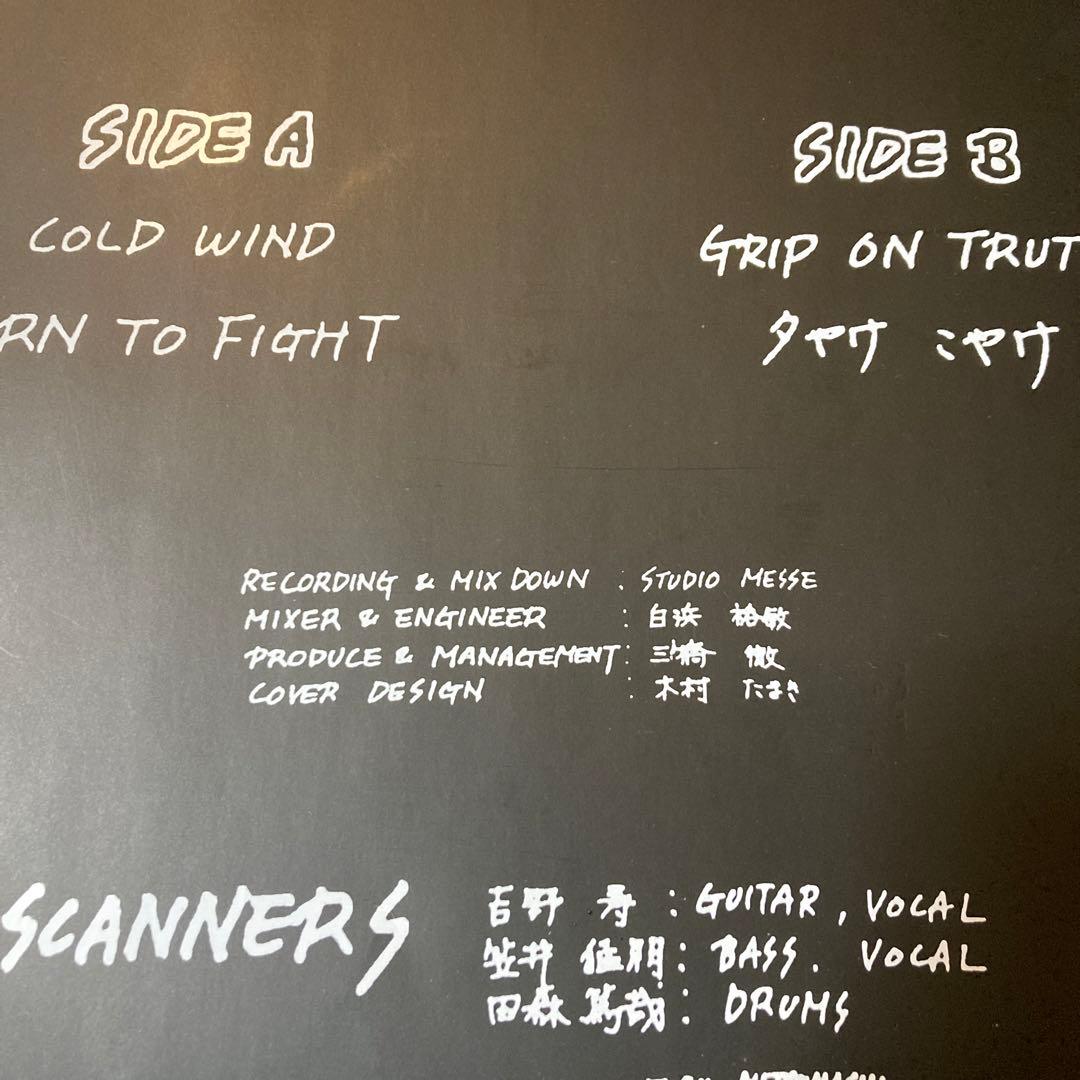 SIDE A
COLD WIND
RN TO FIGHT
SIDE B
GRIP ON TRUT
夕やけ こやけ
RECORDING & MIX DOWN : STUDIO MESSE
MIXER & ENGINEER : 白浜 裕敏
PRODUCE & MANAGEMENT : 三橋 徹
COVER DESIGN : 木村 たまき
SCANNERS
吉野 寿 : GUITAR, VOCAL
笠井 猛朋 : BASS. VOCAL
田森 篤哉 : DRUMS